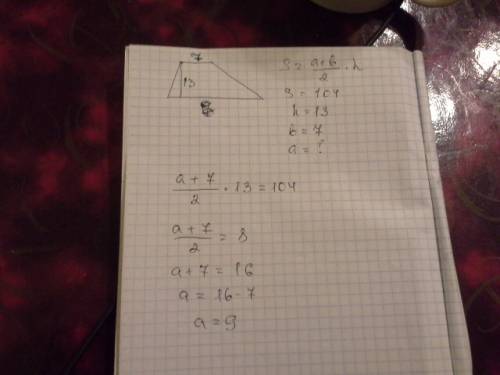 7
13
?
S = \frac{a+b}{2} \cdot h
S = 104
h = 13
b = 7
a = ?
\frac{a+7}{2} \cdot 13 = 104
\frac{a+7}{2} = 8
a + 7 = 16
a = 16 - 7
a = 9